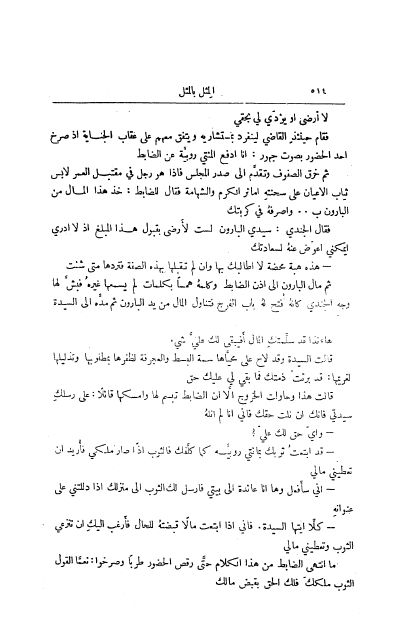 ٥١٤ المثل بالمثل
لا أرضى او يؤدّي لي بحقي
فقام حينئذٍ القاضي لينفرد بمستشاريه ويتفق معهم على عقاب الجناية اذ صرخ
احد الحضور بصوت جهور : انا ادفع المئتي روبيَّة عن الضابط
ثم خرق الصفوف وتقدَّم الى صدر المجلس فاذا هو رجل في مقتبل العمر لابس
ثياب الاعيان على سحنته امائر الكرم والشهامة فقال للضابط : خذ هذا المال من
البارون ب ٠٠ واصرفهُ في كربتك
فقال الجندي : سيدي البارون لست لأرضى بقبول هذا المبلغ اذ لا ادري
ايمكني اعوض عنهُ لسعادتك
— هذه هبة محضة لا اطالبك بها وان لم تقبلها بهذه الصفة فتردها متى شئت
ثم مال البارون الى اذن الضابط وكلمهُ همساً بكلمات لم يسمعها غيرهُ فبشَّ لها
وجه الجندي كأنهُ فُتح لهُ باب الفرج فتناول المال من يد البارون ثم مدَّه الى السيدة
هاءنذا قد سلَّمتكِ المال أفيبقى لك عليَّ شي.
قالت السيدة وقد لاح على محيَّاها سمة البسط والعجرفة لظفرها بمطلوبها وتذليلها
لغريمها : قد برئتْ ذمتك فما بقي لي عليك حق
قالت هذا وحاولت الخروج الَّا ان الضابط تبسم لها وامسكها قائلًا : على رسلكِ
سيدتي فانك ان نلت حقك فاني انا لم انلهُ
— وايّ حق لك عليّ ?
— قد ابتعتُ ثوبك بمائتي روبيَّة كما كلَّفك فالثوب اذًا صار ملكي فأريد ان
تعطيني مالي
— اني سأفعل وها انا عائدة الى بيتي فارسل لك الثوب الى منزلك اذا دللتني على
عنوانه
— كلَّا ايتها السيدة . فاني اذا ابتعت مالًا قبضتهُ للحال فأرغب اليكِ ان تنزعي
الثوب وتعطيني مالي
ما انتهى الضابط من هذا الكلام حتَّى رقص الحضور طربًا وصرخوا : نعمَّا القول
الثوب ملكك فلك الحق بقبض مالك